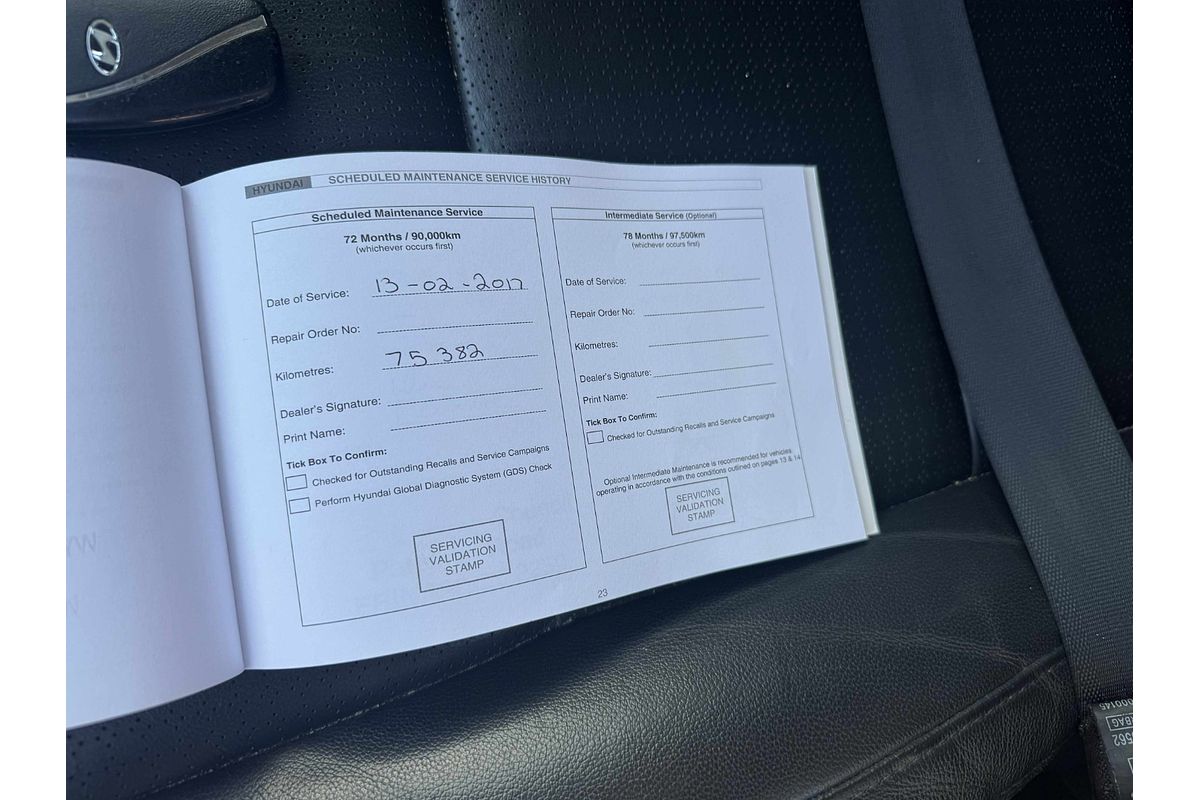 HYUNDAI SCHEDULED MAINTENANCE SERVICE HISTORY
Scheduled Maintenance Service
72 Months / 90,000km
(whichever occurs first)
Date of Service: 13-02-2017
Repair Order No:
Kilometres: 75 382
Dealer's Signature:
Print Name:
Tick Box To Confirm:
Checked for Outstanding Recalls and Service Campaigns
Perform Hyundai Global Diagnostic System (GDS) Check
SERVICING
VALIDATION
STAMP
Intermediate Service (Optional)
78 Months / 97,500km
(whichever occurs first)
Date of Service:
Repair Order No:
Kilometres:
Dealer's Signature:
Print Name:
Tick Box To Confirm:
Checked for Outstanding Recalls and Service Campaigns
Optional Intermediate Maintenance is recommended for vehicles
operating in accordance with the conditions outlined on pages 13 & 14.
SERVICING
VALIDATION
STAMP
23